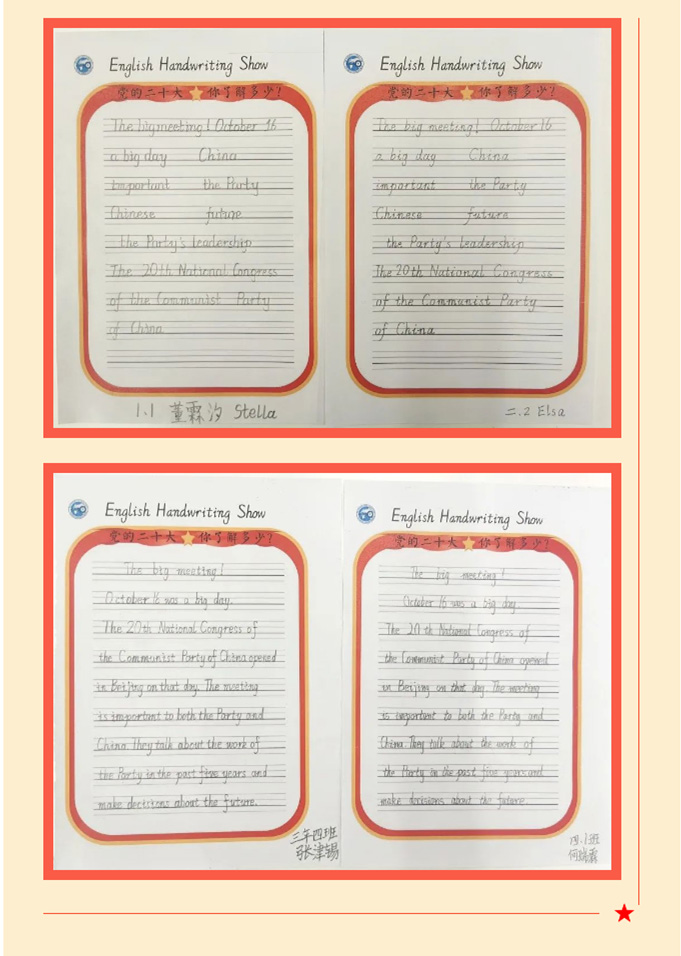 English Handwriting Show
党的二十大 你了解多少？
The big meeting! October 16
a big day China
important the Party
Chinese future
the Party's leadership
The 20th National Congress
of the Communist Party
of China
1.1 董霖汐 Stella
English Handwriting Show
党的二十大 你了解多少？
The big meeting! October 16
a big day China
important the Party
Chinese future
the Party's leadership
The 20th National Congress
of the Communist Party
of China
二.2 Elsa
English Handwriting Show
党的二十大 你了解多少？
The big meeting!
October 16 was a big day.
The 20th National Congress of
the Communist Party of China opened
in Beijing on that day. The meeting
is important to both the Party and
China. They talk about the work of
the Party in the past five years and
make decisions about the future.
三年四班
张津锡
English Handwriting Show
党的二十大 你了解多少？
The big meeting!
October 16 was a big day.
The 20th National Congress of
the Communist Party of China opened
in Beijing on that day. The meeting
is important to both the Party and
China. They talk about the work of
the Party in the past five years and
make decisions about the future.
四.1班